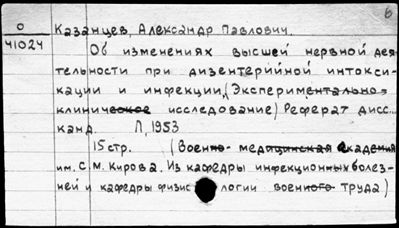 6
О
41024
Казанцев, Александр Павлович.
Об изменениях высшей нервной дея
тельности при дизентерийной интокси-
кации и инфекции (Экспериментально-
клиническое исследование) Реферат дисс.
канд. Л, 1953
15 стр. (Военно-медицинская академия
им. С.М. Кирова. Из кафедры инфекционных болез-
ней и кафедры физиологии военного труда)